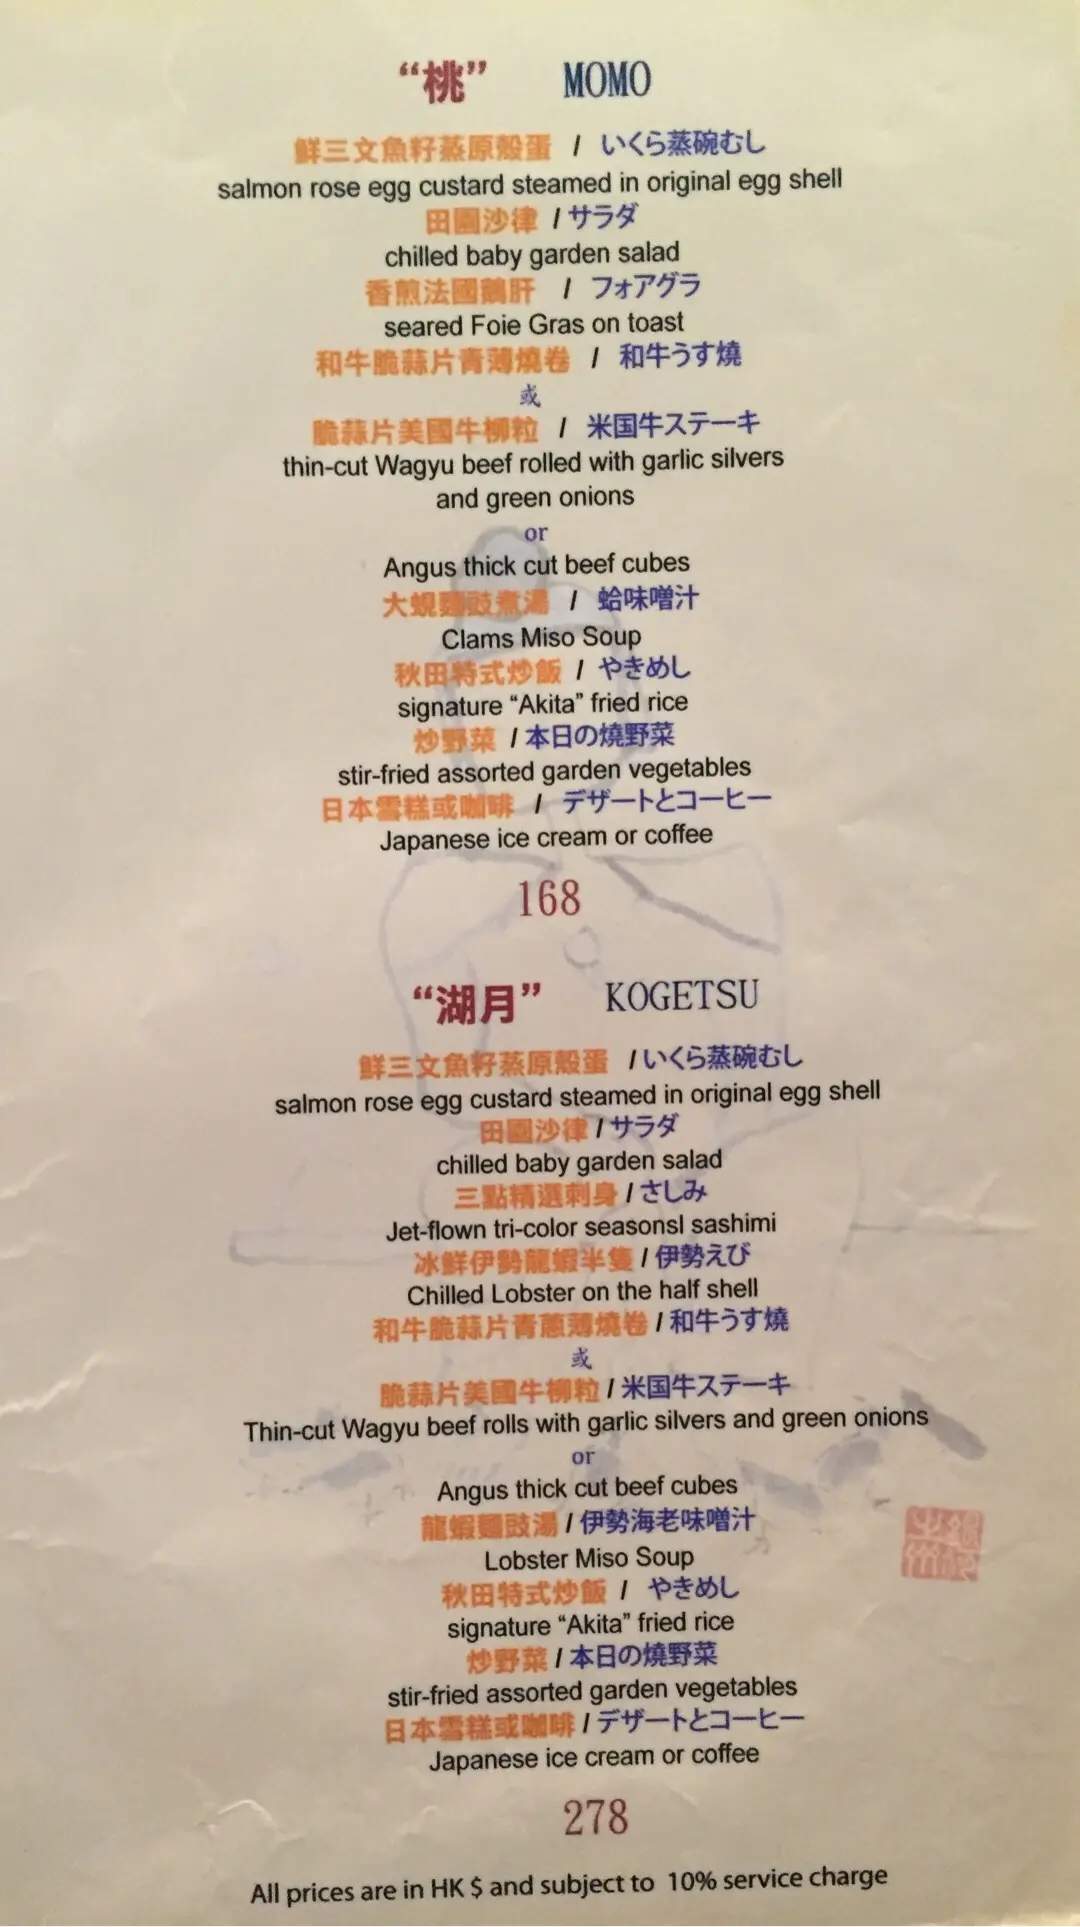 “桃” MOMO
鮮三文魚籽蒸原殼蛋 / いくら蒸碗むし
salmon rose egg custard steamed in original egg shell
田園沙律 / サラダ
chilled baby garden salad
香煎法國鵝肝 / フォアグラ
seared Foie Gras on toast
和牛脆蒜片青薄燒卷 / 和牛うす燒
或
脆蒜片美國牛柳粒 / 米国牛ステーキ
thin-cut Wagyu beef rolled with garlic silvers
and green onions
or
Angus thick cut beef cubes
大蜆麵豉煮湯 / 蛤味噌汁
Clams Miso Soup
秋田特式炒飯 / やきめし
signature “Akita” fried rice
炒野菜 / 本日の燒野菜
stir-fried assorted garden vegetables
日本雪糕或咖啡 / デザートとコーヒー
Japanese ice cream or coffee
168
“湖月” KOGETSU
鮮三文魚籽蒸原殼蛋 / いくら蒸碗むし
salmon rose egg custard steamed in original egg shell
田園沙律 / サラダ
chilled baby garden salad
三點精選刺身 / さしみ
Jet-flown tri-color seasonsl sashimi
冰鮮伊勢龍蝦半隻 / 伊勢えび
Chilled Lobster on the half shell
和牛脆蒜片青蔥薄燒卷 / 和牛うす燒
或
脆蒜片美國牛柳粒 / 米国牛ステーキ
Thin-cut Wagyu beef rolls with garlic silvers and green onions
or
Angus thick cut beef cubes
龍蝦麵豉湯 / 伊勢海老味噌汁
Lobster Miso Soup
秋田特式炒飯 / やきめし
signature “Akita” fried rice
炒野菜 / 本日の燒野菜
stir-fried assorted garden vegetables
日本雪糕或咖啡 / デザートとコーヒー
Japanese ice cream or coffee
278
All prices are in HK $ and subject to 10% service charge